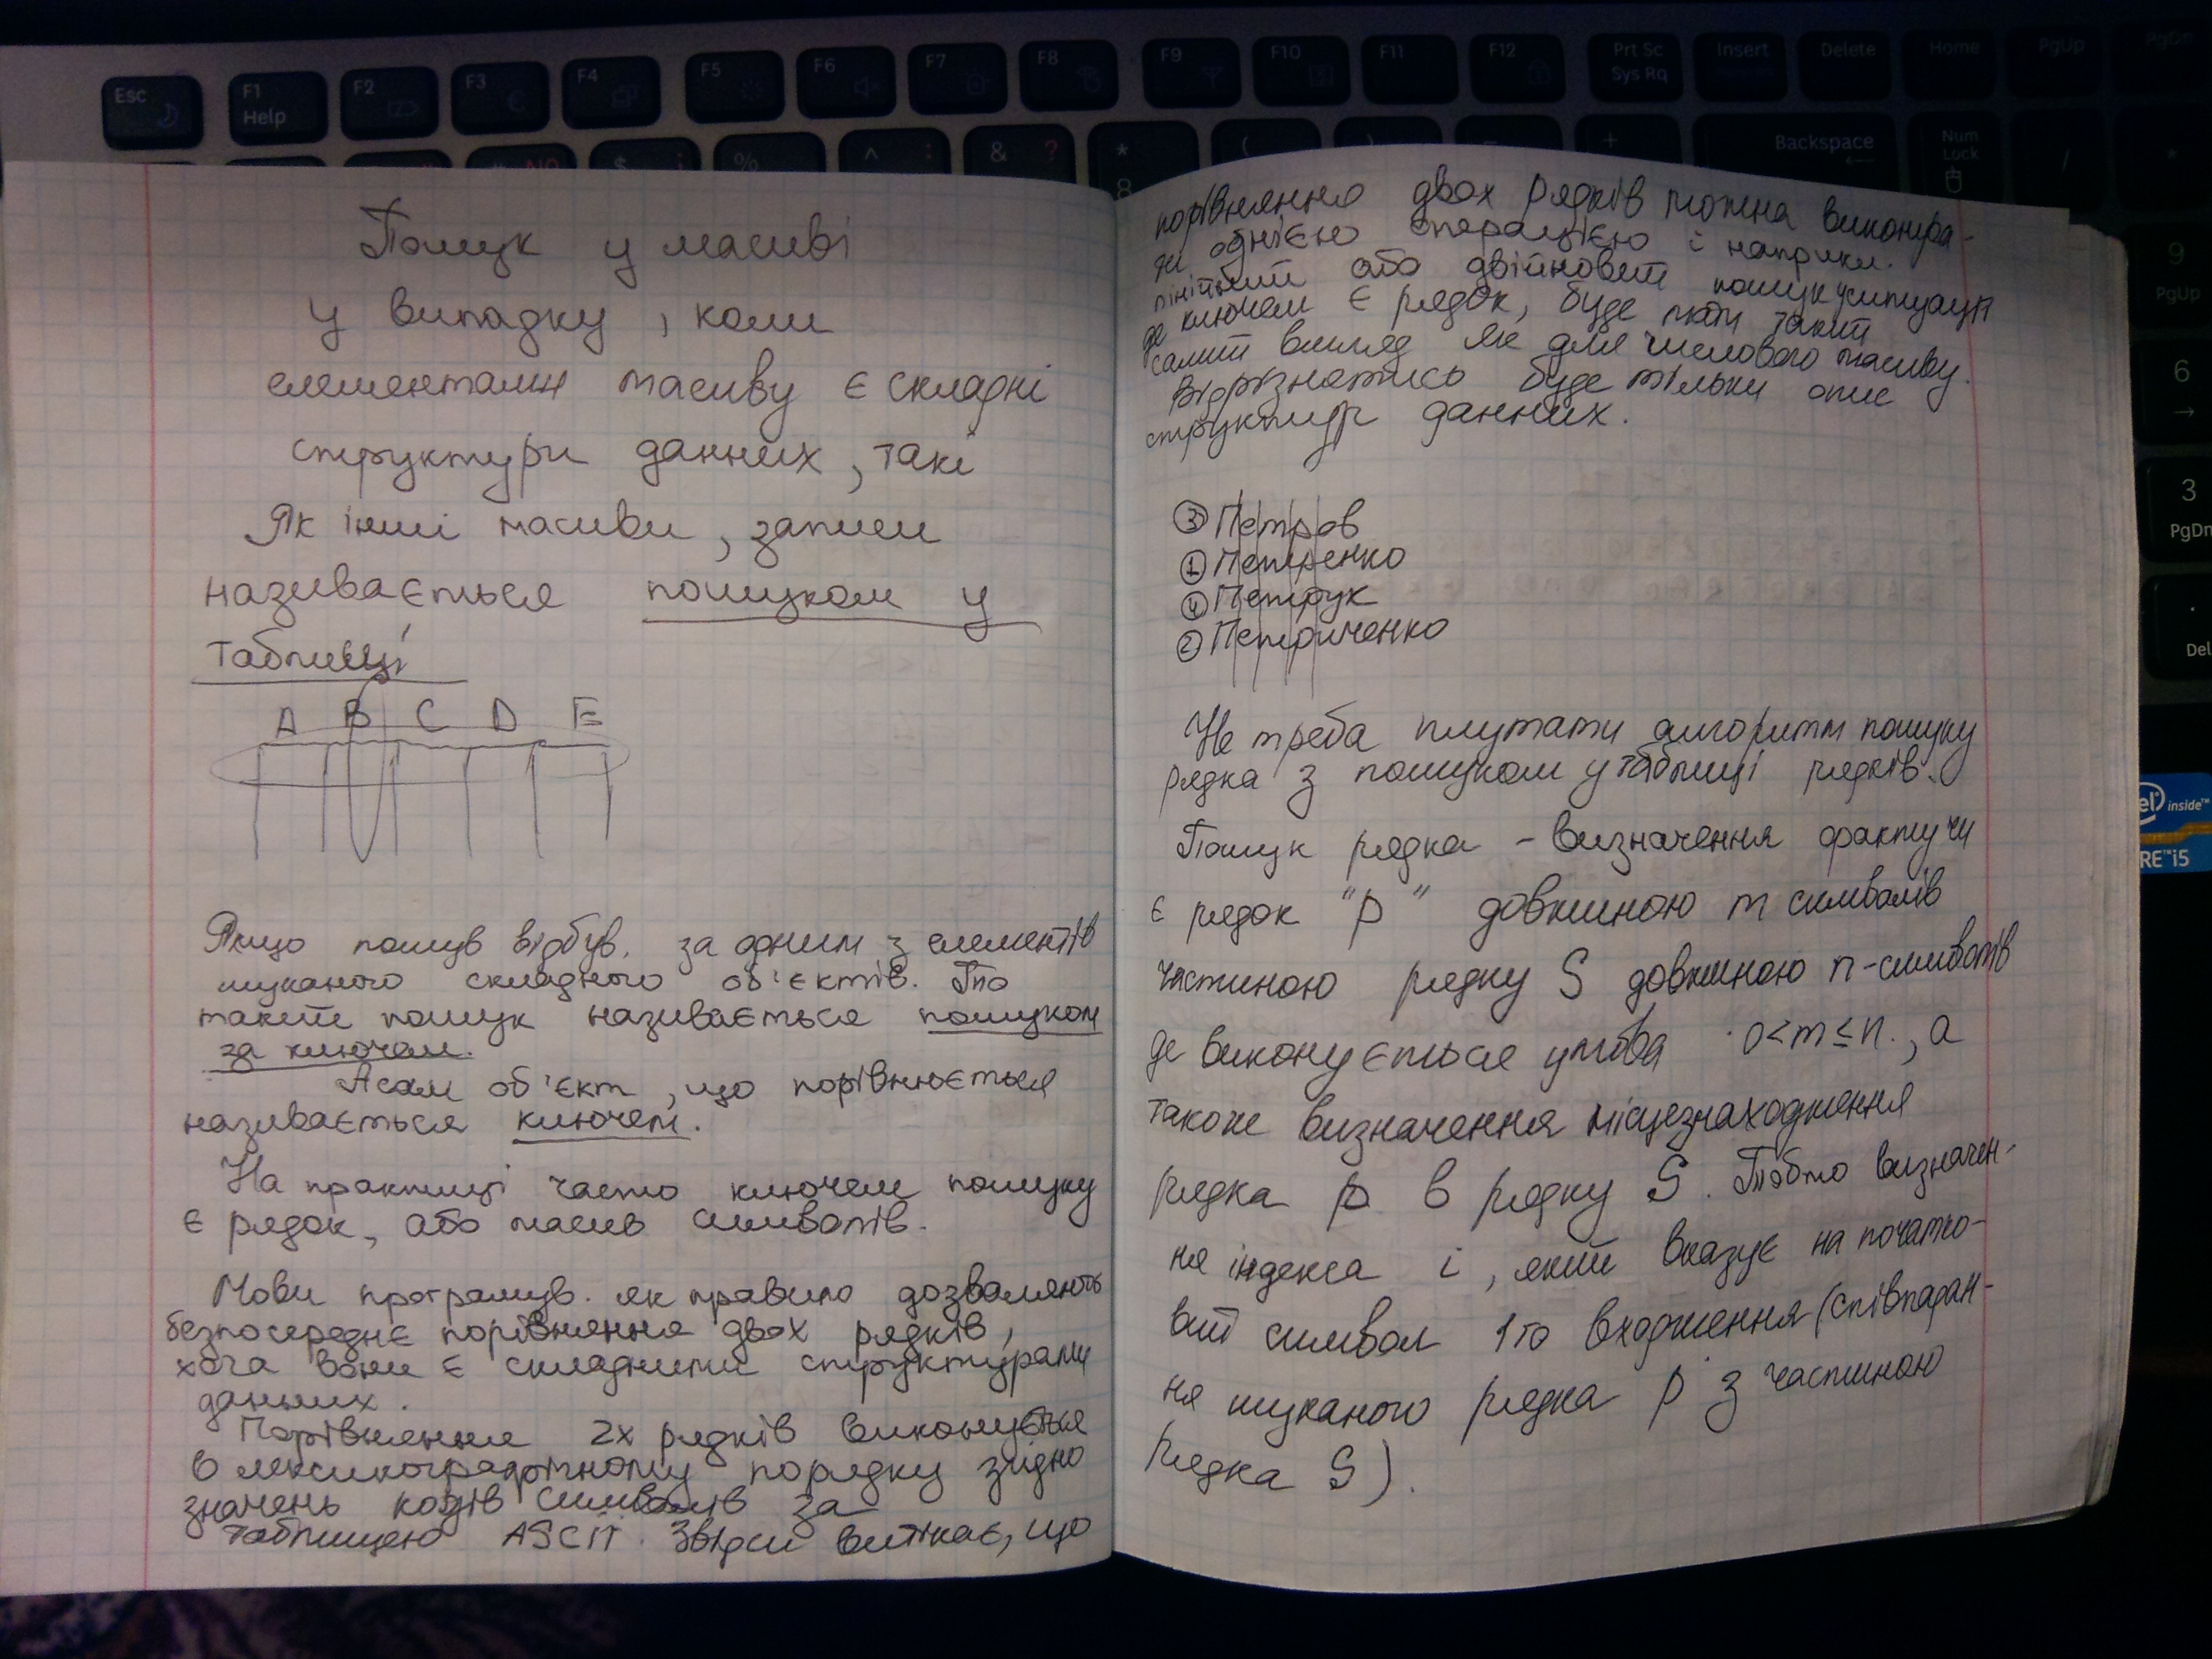 Esc
F1
Help
F2
F3
F4
F5
F6
F7
F8
F9
F10
F11
F12
Prt Sc
Sys Rq
Insert
Delete
Home
PgUp
Backspace
Num
Lock
9
PgUp
6
3
PgDn
Del
inside™
RE™ i5
Пошук у масиві
У випадку, коли
елементами масиву є складні
структури данних, такі
Як інші масиви, записи
називається пошуком у
таблиці
A B C D E
Якщо пошув відбув. за одним з елементів
шуканого складного об'єктів. То
такий пошук називається пошуком
за ключем.
А сам об'єкт, що порівнюється
називається ключем.
На практиці часто ключем пошуку
є рядок, або масив символів.
Мови програмув. як правило дозваляють
безпосереднє порівняння двох рядків,
хоча вони є складними структурами
данних.
Порівняння 2х рядків виконується
в лексикографічному порядку згідно
значень кодів символів за
таблицею ASCII. Звідси витікає, що
порівняння двох рядків можна виконува-
ти однією операцією і наприкл.
лінійний або двійковий пошук у ситуації
де ключем є рядок, буде мати такий
самий вигляд як для числового масиву.
Відрізнятись буде тільки опис
структур данних.
3 Петров
1 Петренко
4 Петрук
2 Петриченко
Не треба плутати алгоритм пошуку
рядка з пошуком у таблиці рядків.
Пошук рядка - визначення факту чи
є рядок "p" довжиною m символів
частиною рядку S довжиною n-символів
де виконується умова 0<m≤n., а
також визначення місцезнаходження
рядка p в рядку S. Тобто визначен-
ня індекса i, який вказує на почато-
вий символ 1го входження (співпадан-
ня шуканого рядка p з частиною
рядка S).